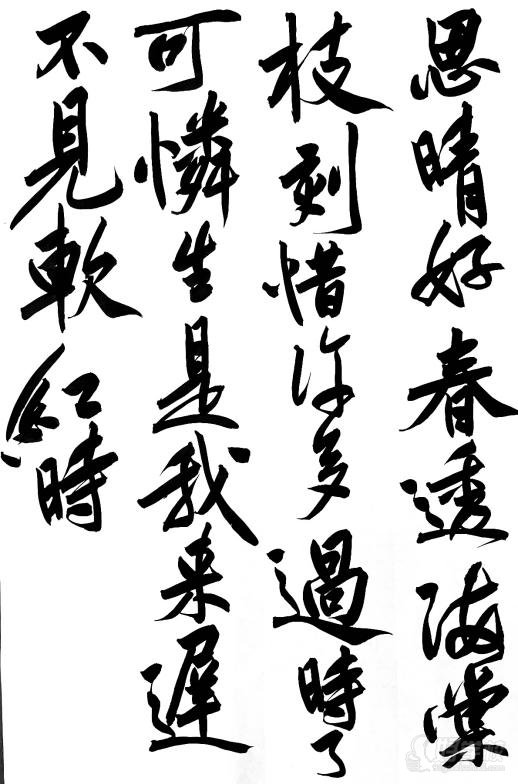 思晴好春透海棠
枝刻惜许多過時了
可憐生是我来遲
不見軟紅時